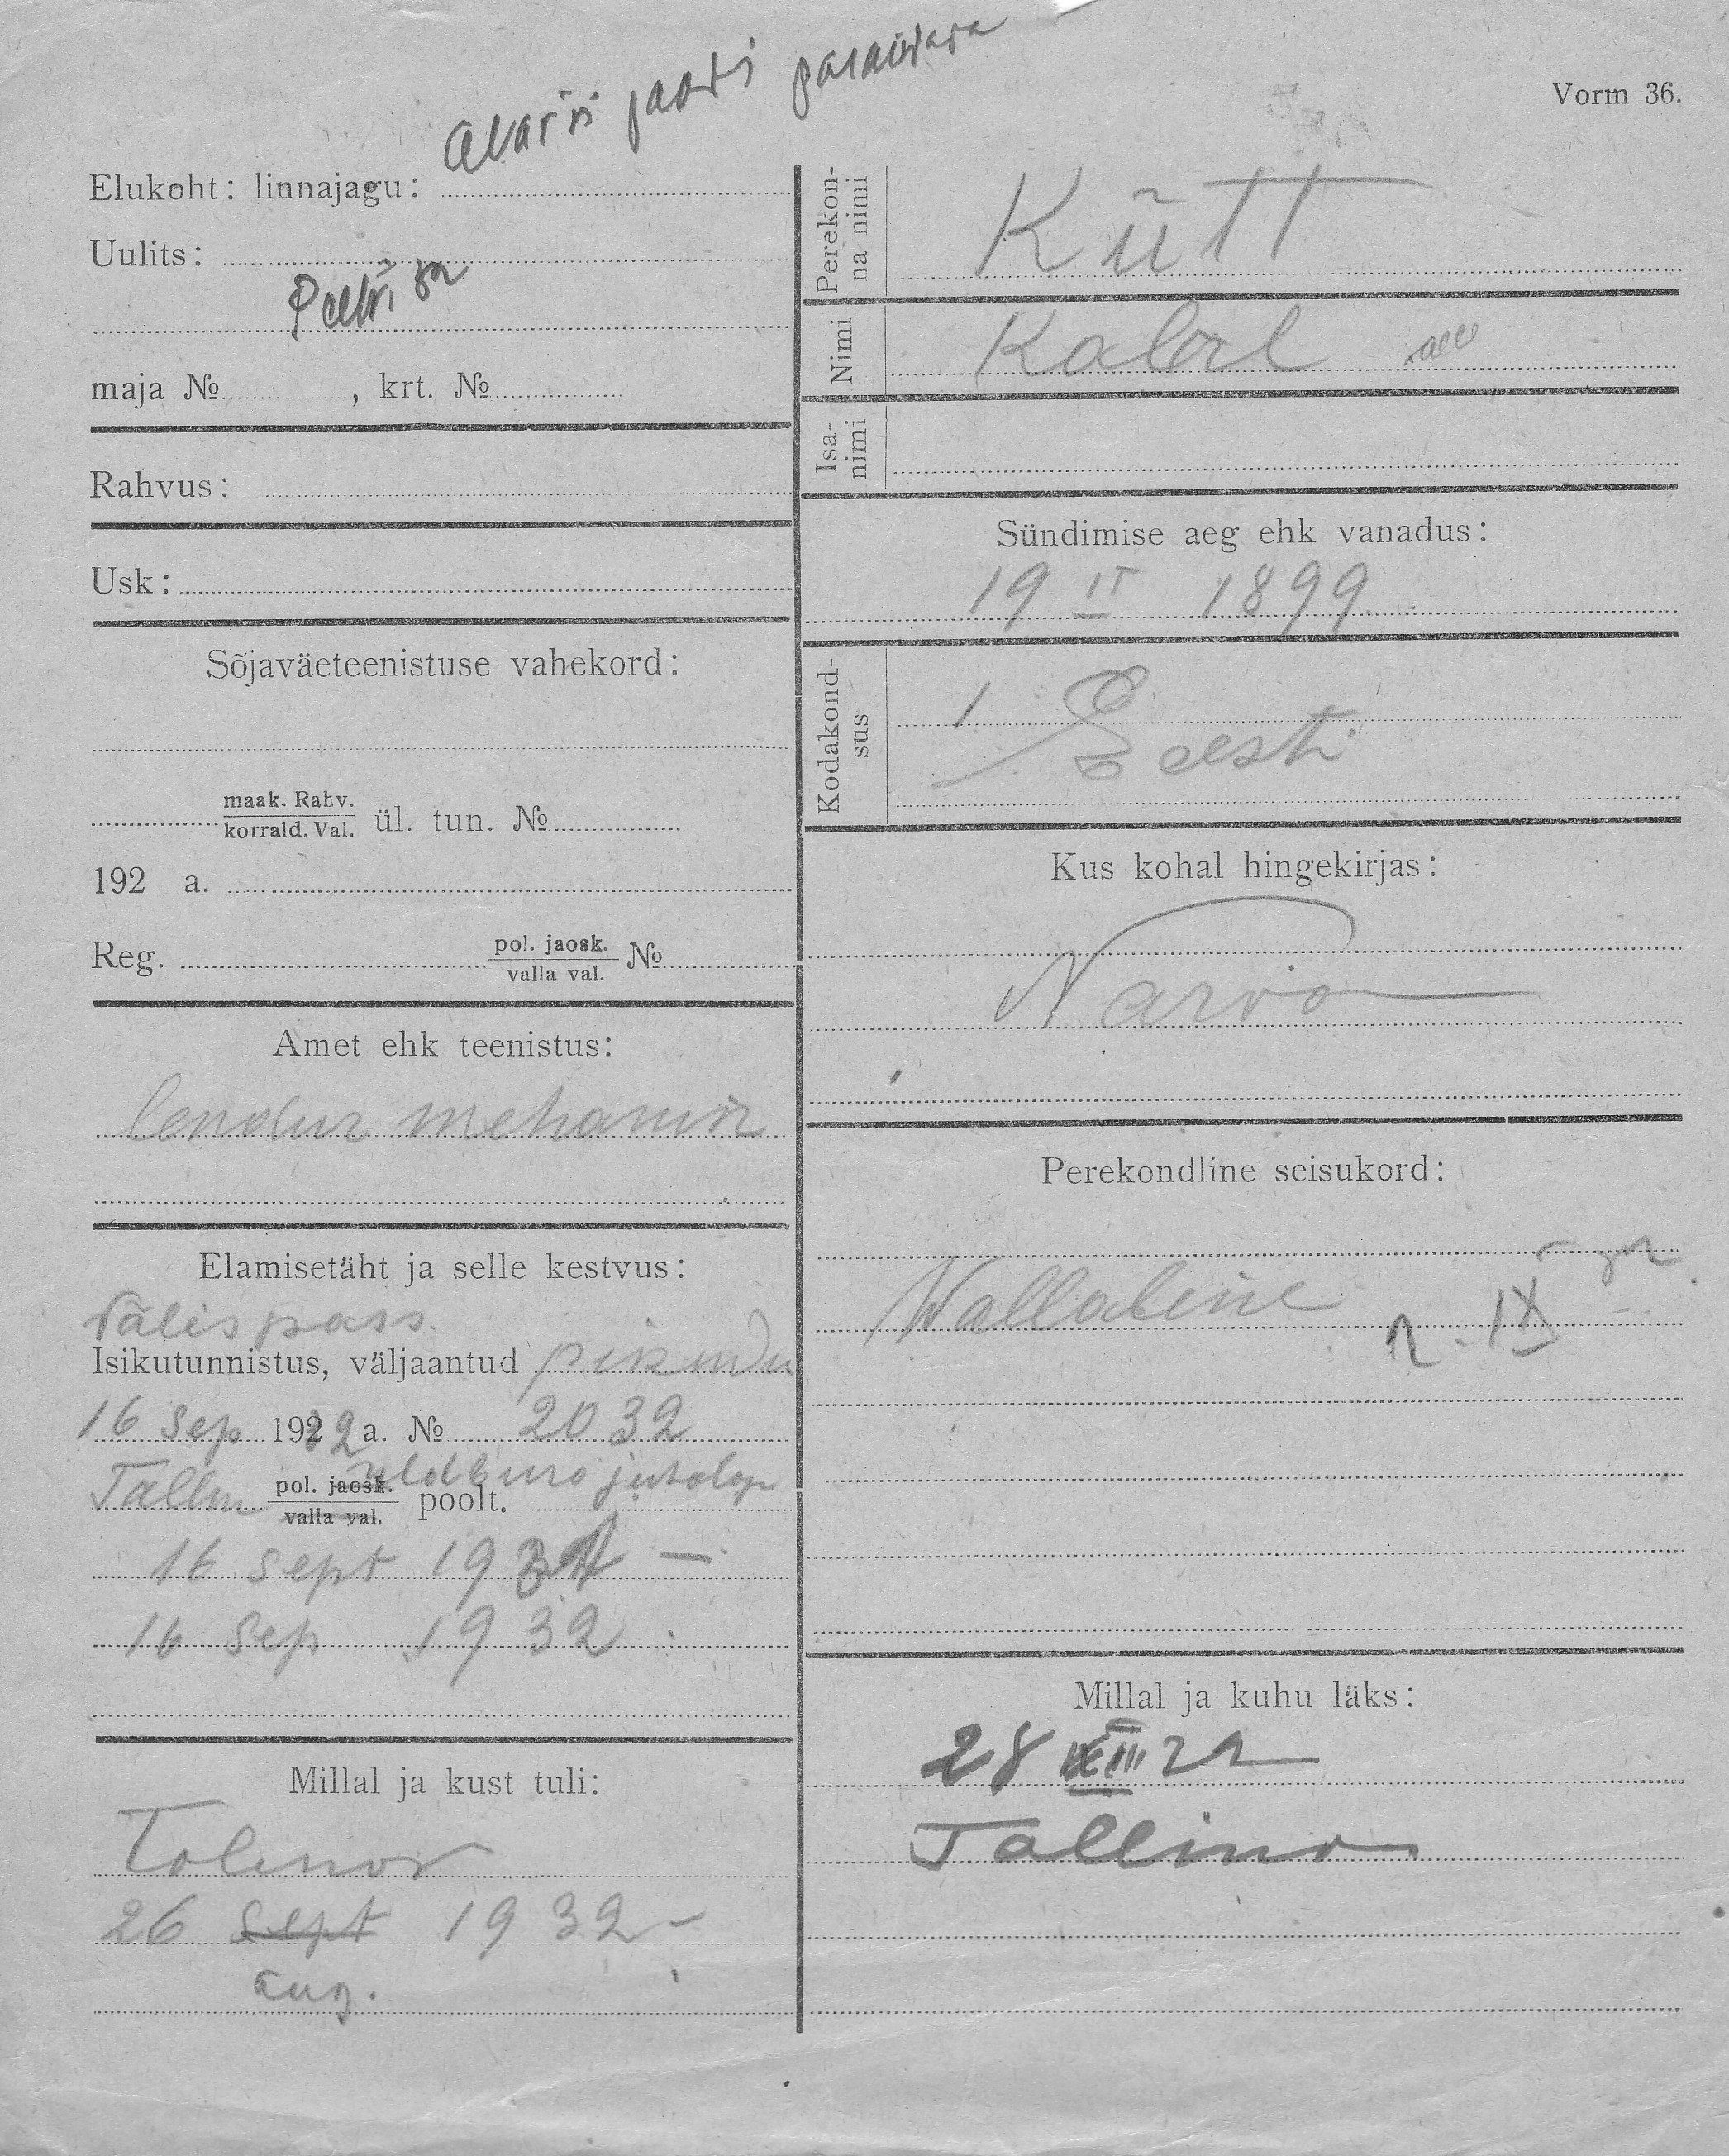 Vorm 36.
Elukoht: linnajagu:
Uulits:
maja № , krt. №
Rahvus:
Usk:
Sõjaväeteenistuse vahekord:
maak. Rahv.
korrald. Val. ül. tun. №
192 a.
Reg. pol. jaosk.
valla val. №
Amet ehk teenistus:
lendur mehanik
Elamisetäht ja selle kestvus:
Välispass.
Isikutunnistus, väljaantud
16 Sep 192 a. № 2032
Tallin pol. jaosk.
valla val. poolt.
16 sept 19
16 Sep 1932
Millal ja kust tuli:
26 sept 1932
aug.
Perekonna nimi
Kütt
Nimi
Isanimi
Sündimise aeg ehk vanadus:
19 II 1899
Kodakondsus
Eesti
Kus kohal hingekirjas:
Narva
Perekondline seisukord:
Wallaline
Millal ja kuhu läks:
28
Tallinna